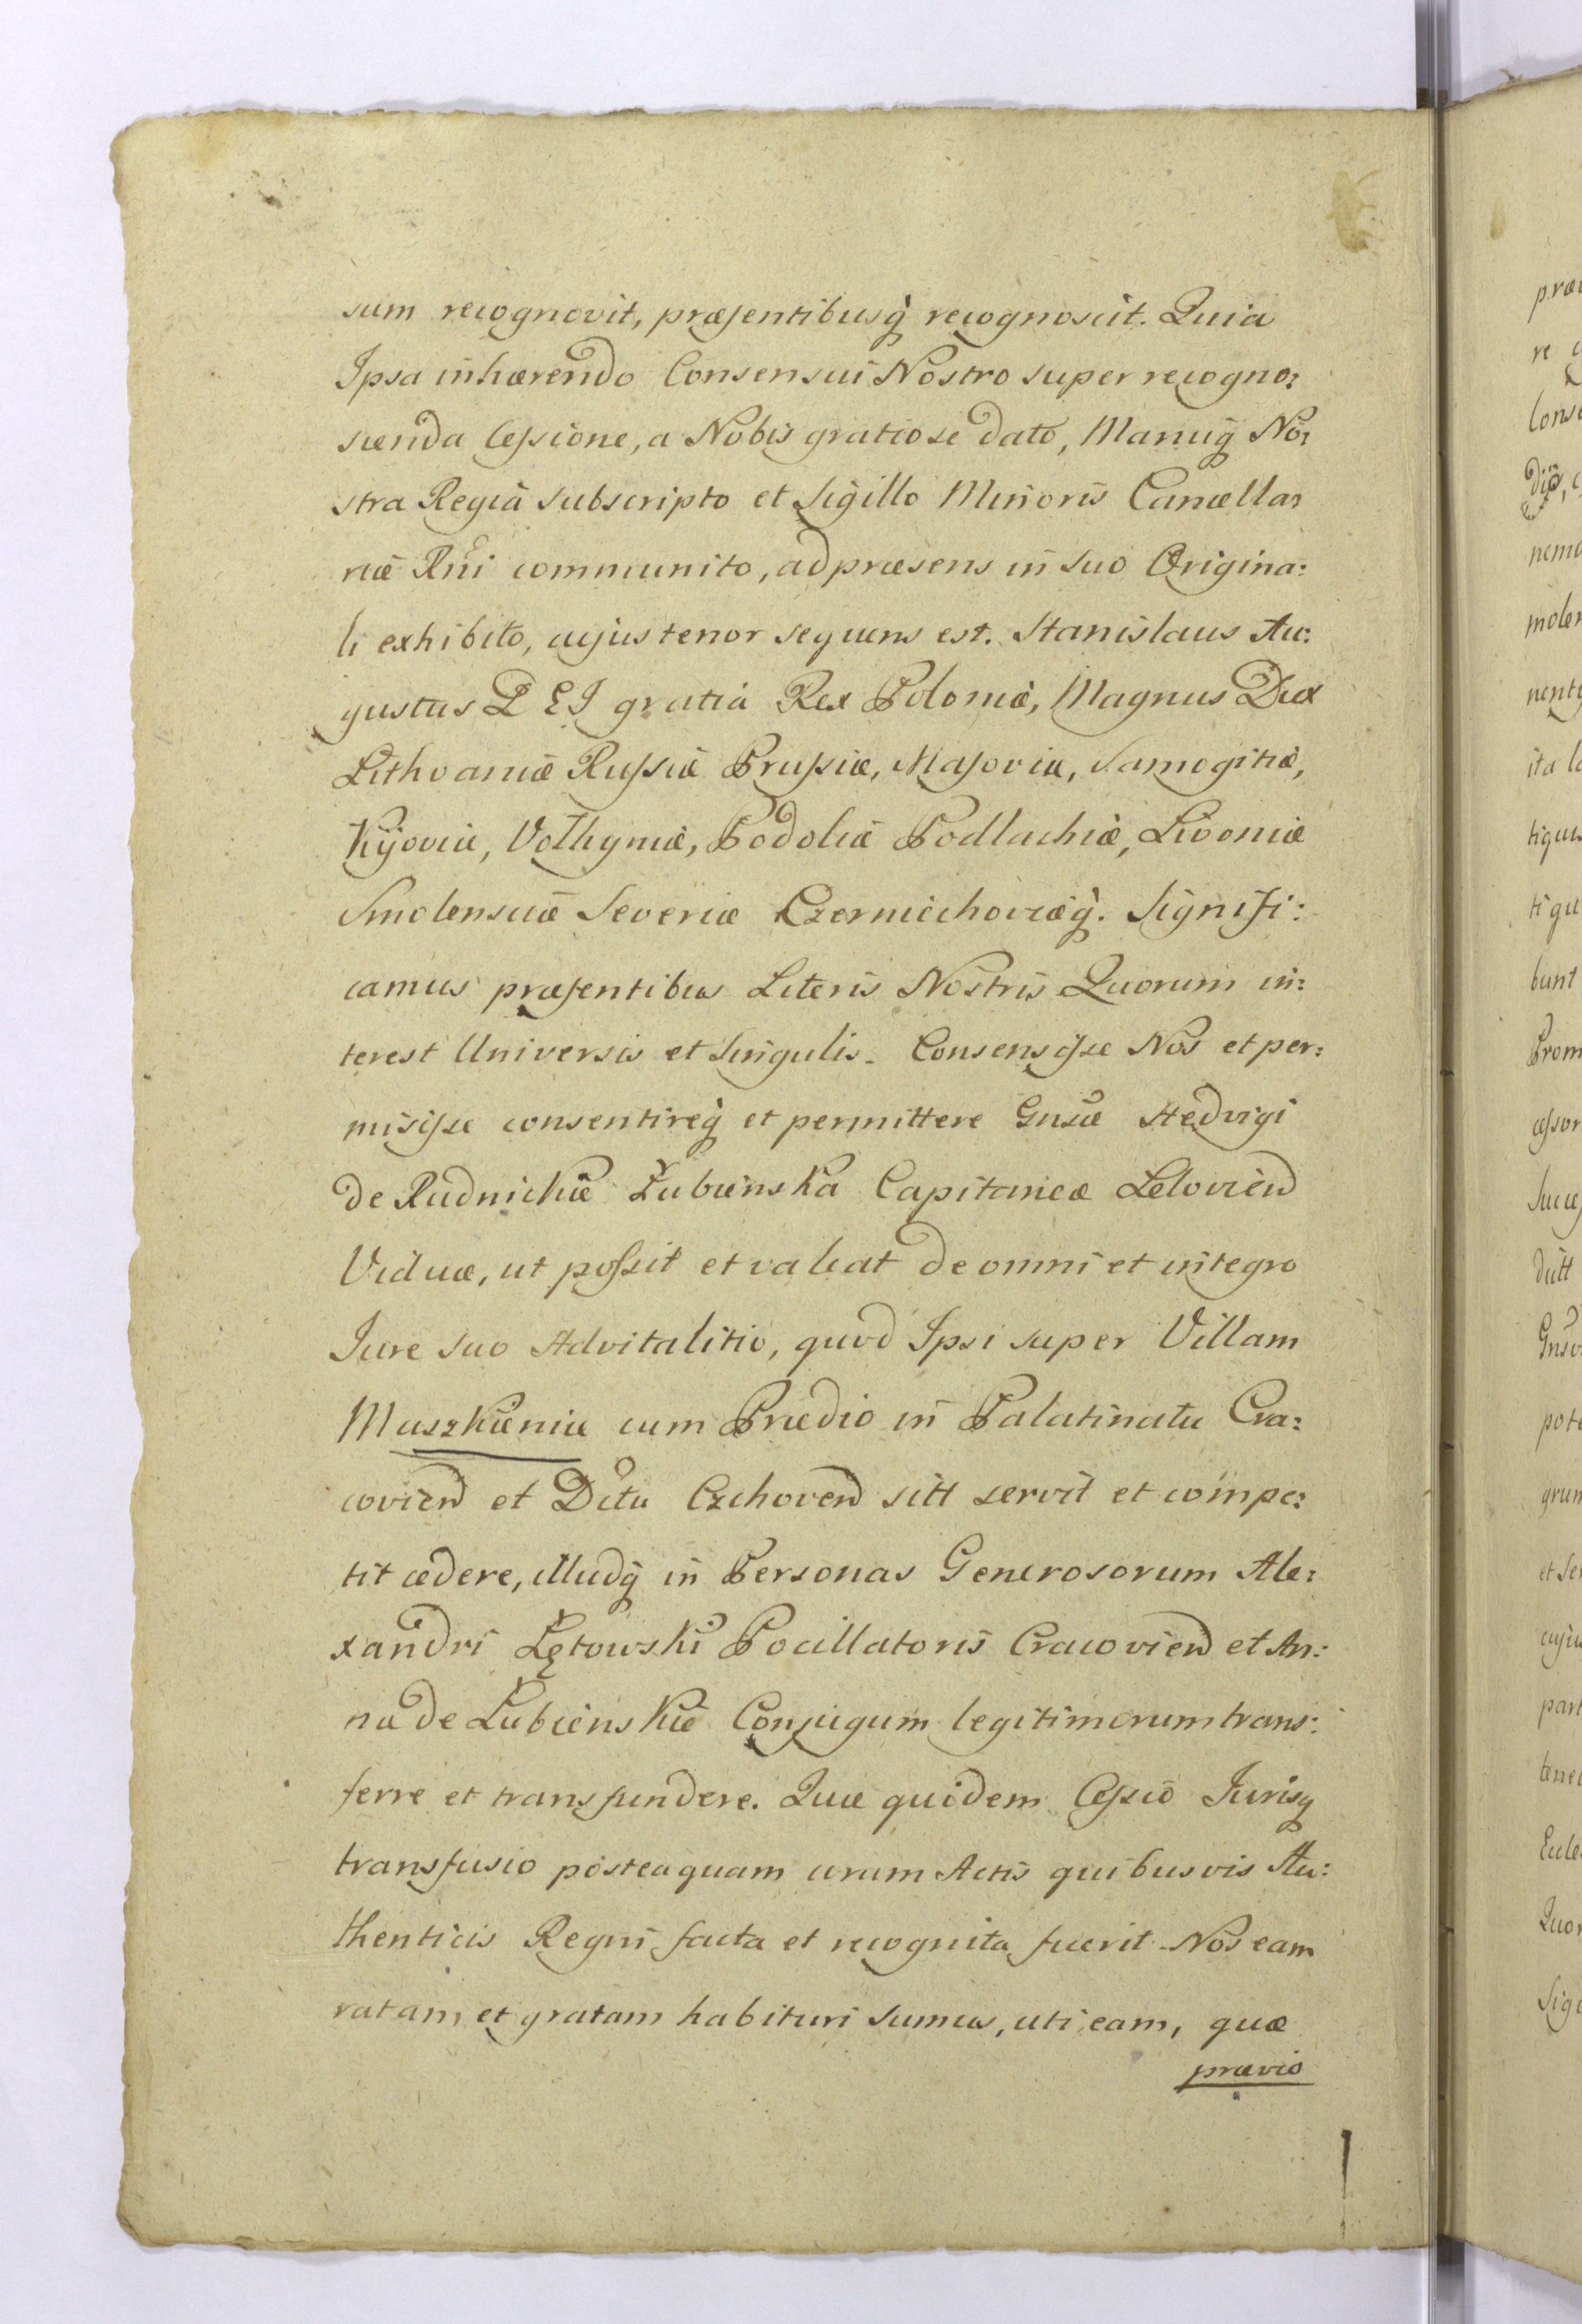 sum recognovit, præsentibusq̃ recognoscit. Quia
Ipsa inhærendo Consensui Nostro super recogno:
scenda Cessione, a Nobis gratiose dato, Manuq̃ No:
stra Regia subscripto et Sigillo Minoris Cancella:
riæ Rñi communito, ad præsens in suo Origina:
li exhibito, cujus tenor sequens est. Stanislaus Au:
gustus DEI gratia Rex Poloniæ, Magnus Dux
Lithvaniæ Russiæ Prussiæ, Masoviæ, Samogitiæ,
Kijoviæ, Volhyniæ, Podoliæ Podlachiæ, Livoniæ
Smolensciæ Severiæ Czerniechoviæq̃. Signifi:
camus præsentibus Literis Nostris Quorum in:
terest Universis et Singulis. Consensisse Nos et per:
misisse consentireq̃ et permittere Gnsæ Hedvigi
de Rudnickie Łubienska Capitaneæ Lelovien
Viduæ, ut possit et valeat de omni et integro
Jure suo Advitalitio, quod Ipsi super Villam
Maszkienice cum Prædio in Palatinatu Cra:
covien et Dctu Czchoven sitt servit et compe:
tit cedere, illudq̃ in Personas Generosorum Ale:
xandri Łętowski Pocillatoris Cracovien et An:
na de Łubienskie Conjugum legitimorum trans:
ferre et transfundere. Quæ quidem Cessio Jurisq
transfusio posteaquam coram Actis quibusvis Au:
thenticis Regni facta et recognita fuerit. Nos eam
ratam et gratam habituri sumus, uti eam, quæ
prævio
præ
re
Cons
nemo
molen
nenty
ita
tiqu
bunt
Prom
Succes
ditt
Gnso
pote
grum
et Se
cuju
part
tene
Eccle
Quor
Sigi